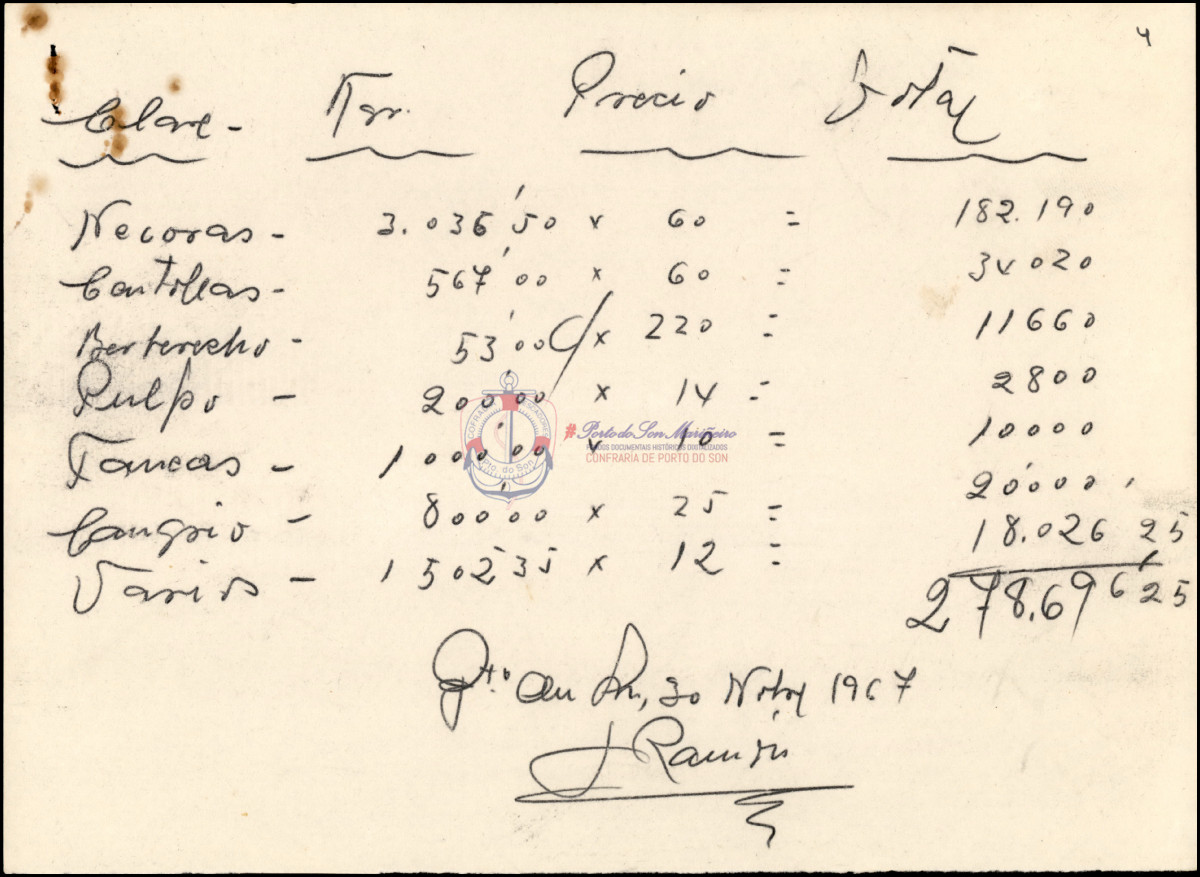 4
Clase - Kgr. Precio Total
Necoras - 3.036'50 x 60 = 182.190
Centollas - 567'00 x 60 = 34020
Berberecho - 53'00 c/ x 220 = 11660
Pulpo - 200'00 x 14 = 2800
#PortodoSonMariñeiro
FONDOS DOCUMENTAIS HISTÓRICOS DIGITALIZADOS
CONFRARÍA DE PORTO DO SON
Fanecas - 1000'00 x 10 = 10000
Congrio - 800'00 x 25 = 20000
Varios - 1502'35 x 12 = 18.026 25
278.696'25
Pto del Son, 30 Nbre 1967
J Ramón